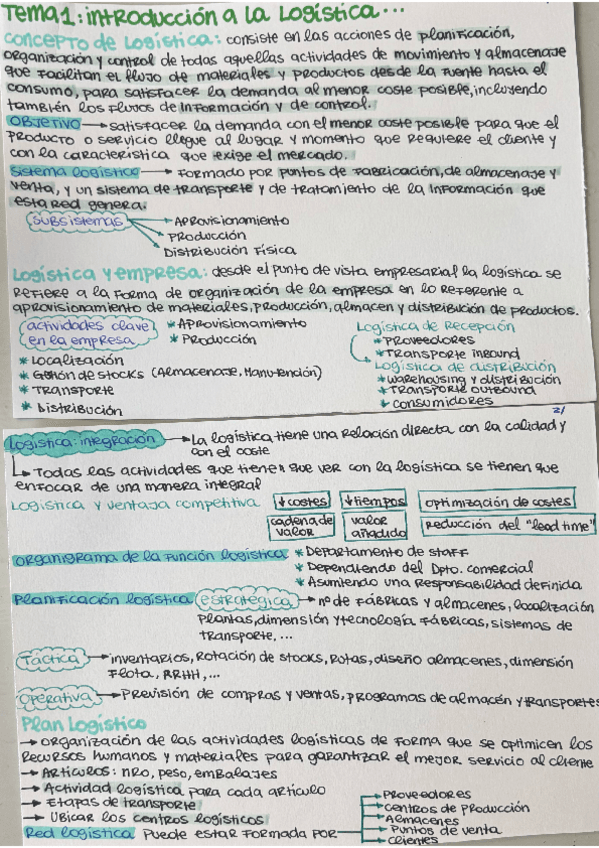 Tema 1: introducción a la Logística...
Concepto de Logística: consiste en las acciones de planificación,
organización y control de todas aquellas actividades de movimiento y almacenaje
que facilitan el flujo de materiales y productos desde la fuente hasta el
consumo, para satisfacer la demanda al menor coste posible, incluyendo
también los flujos de información y de control.
Objetivo → satisfacer la demanda con el menor coste posible para que el
producto o servicio llegue al lugar y momento que requiere el cliente y
con la característica que exige el mercado.
Sistema logístico → Formado por puntos de fabricación, de almacenaje y
venta, y un sistema de transporte y de tratamiento de la información que
esta red genera.
Subsistemas → Aprovisionamiento
→ Producción
→ Distribución Física
Logística y empresa: desde el punto de vista empresarial la logística se
refiere a la forma de organización de la empresa en lo referente a
aprovisionamiento de materiales, producción, almacen y distribución de productos.
actividades clave
en la empresa
* Aprovisionamiento
* Producción
* Localización
* Gestión de stocks (Almacenaje, Manutención)
* Transporte
* Distribución
Logística de Recepción
* Proveedores
* Transporte inbound
Logística de distribución
* Warehousing y distribución
* Transporte outbound
* Consumidores
2/
Logística: integración → La logística tiene una relación directa con la calidad y
con el coste
↳ Todas las actividades que tienen que ver con la logística se tienen que
enfocar de una manera integral
Logística y ventaja competitiva ↓costes ↓tiempos optimización de costes
cadena de valor valor añadido Reducción del "lead time"
Organigrama de la función logística * Departamento de staff
* Dependiendo del Dpto. comercial
* Asumiendo una responsabilidad definida
Planificación logística estratégica → nº de fábricas y almacenes, localización
plantas, dimensión y tecnología fábricas, sistemas de
transporte,...
Táctica → inventarios, Rotación de stocks, Rutas, diseño almacenes, dimensión
flota, RRHH,...
Operativa → Previsión de compras y ventas, programas de almacén y transportes
Plan Logístico
→ organización de las actividades logísticas de forma que se optimicen los
recursos humanos y materiales para garantizar el mejor servicio al cliente
→ Artículos: nro, peso, embalajes
→ Actividad logística para cada artículo
→ Etapas de transporte
→ Ubicar los centros logísticos
Red logística puede estar formada por
→ Proveedores
→ Centros de producción
→ Almacenes
→ Puntos de venta
→ Clientes